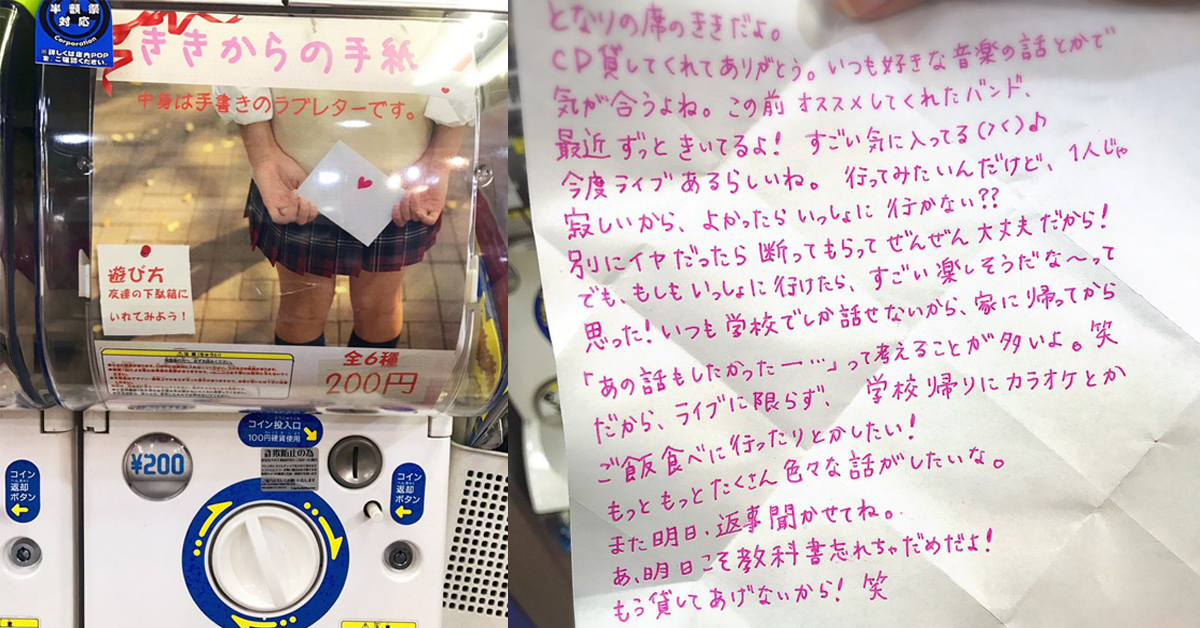 半額祭
対応
Corporation
※詳しくは店内POP
を、ご確認ください。
ききからの手紙
中身は手書きのラブレターです。
遊び方
友達の下駄箱に
いれてみよう!
全6種
200円
コイン投入口
100円硬貨使用
¥200
コイン
返却
ボタン
コイン
返却
ボタン
となりの席のききだよ。
CD貸してくれてありがとう。いつも好きな音楽の話とかで
気が合うよね。この前オススメしてくれたバンド、
最近ずっときいてるよ! すごい気に入ってる(><)♪
今度ライブあるらしいね。行ってみたいんだけど、1人じゃ
寂しいから、よかったらいっしょに行かない??
別にイヤだったら断ってもらってぜんぜん大丈夫だから!
でも、もしもいっしょに行けたら、すごい楽しそうだな〜って
思った!いつも学校でしか話せないから、家に帰ってから
「あの話もしたかったー…」って考えることが多いよ。笑
だから、ライブに限らず、学校帰りにカラオケとか
ご飯食べに行ったりとかしたい!
もっともっとたくさん色々な話がしたいな。
また明日、返事聞かせてね。
あ、明日こそ教科書忘れちゃだめだよ!
もう貸してあげないから!笑